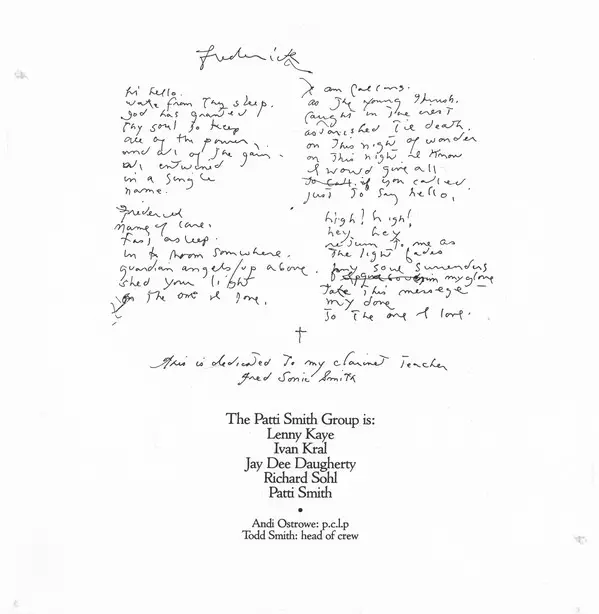 frederick
hi hello.
wake from thy sleep.
god has granted
thy soul to keep
all of the power,
and all of the gain.
all entwined
in a single
name.
frederick
name of care.
fast asleep.
in a room somewhere.
guardian angels/up above.
shed your light
on the one I love.
I am calling.
as the young thrush.
caught in the
astonished til death.
on this night of wonder
on this night. I know
I would give all
to call. if you called
just to say hello.
high! high!
hey hey
return to me as
the light fades
my soul surrenders
in my glove
take this message
my dove
to the one I love.
†
this is dedicated to my clarinet teacher
fred sonic smith
The Patti Smith Group is:
Lenny Kaye
Ivan Kral
Jay Dee Daugherty
Richard Sohl
Patti Smith
•
Andi Ostrowe: p.c.l.p
Todd Smith: head of crew